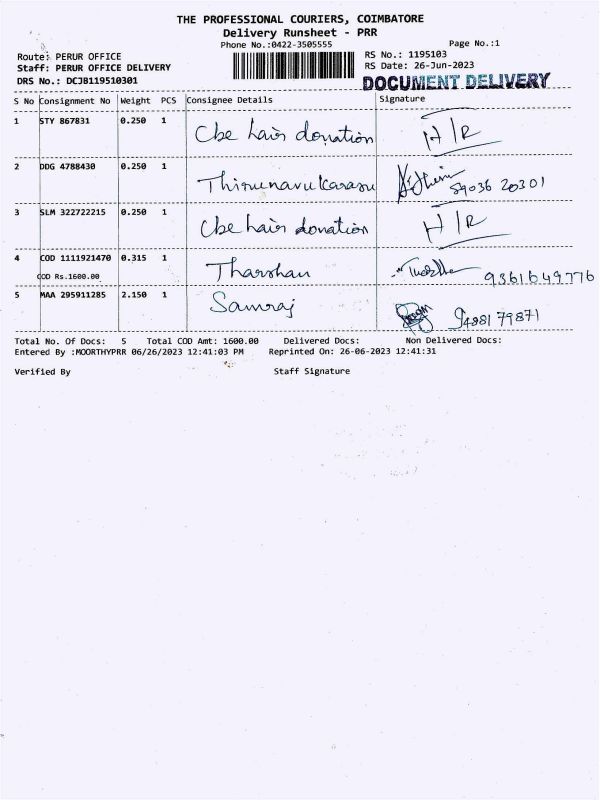 THE PROFESSIONAL COURIERS, COIMBATORE
Delivery Runsheet - PRR
Phone No.:0422-3505555
Page No.:1
Route: PERUR OFFICE
RS No.: 1195103
Staff: PERUR OFFICE DELIVERY
RS Date: 26-Jun-2023
DRS No.: DCJB119510301
DOCUMENT DELIVERY
S No Consignment No Weight PCS Consignee Details Signature
1 STY 867831 0.250 1 Cbe hair donation H/R
2 DDG 4788430 0.250 1 Thirunavukarasu 89036 20301
3 SLM 322722215 0.250 1 Cbe hair donation H/R
4 COD 1111921470 0.315 1 Tharshan 9361649776
COD Rs.1600.00
5 MAA 295911285 2.150 1 Samraj 9488179871
Total No. Of Docs: 5 Total COD Amt: 1600.00 Delivered Docs: Non Delivered Docs:
Entered By :MOORTHYPRR 06/26/2023 12:41:03 PM Reprinted On: 26-06-2023 12:41:31
Verified By Staff Signature